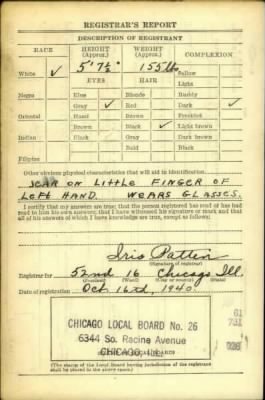 REGISTRAR'S REPORT
DESCRIPTION OF REGISTRANT
RACE HEIGHT (Approx.) WEIGHT (Approx.) COMPLEXION
White ✓ 5' 7½" 155 lb Sallow
EYES HAIR Light
Negro Blue Blonde Ruddy
Gray ✓ Red Dark ✓
Oriental Hazel Brown Freckled
Brown Black ✓ Light brown
Indian Black Gray Dark brown
Bald Black
Filipino
Other obvious physical characteristics that will aid in identification
SCAR ON LITTLE FINGER OF
LEFT HAND. WEARS GLASSES.
I certify that my answers are true; that the person registered has read or has had
read to him his own answers; that I have witnessed his signature or mark and that
all of his answers of which I have knowledge are true, except as follows:
Iris Patten
(Signature of registrar)
Registrar for 52nd 16 Chicago Ill.
(Precinct) (Ward) (City or county) (State)
Date of registration Oct 16th, 1940
CHICAGO LOCAL BOARD No. 26
6344 So. Racine Avenue
CHICAGO, ILL.
(The stamp of the Local Board having jurisdiction of the registrant
shall be placed in the above space.)